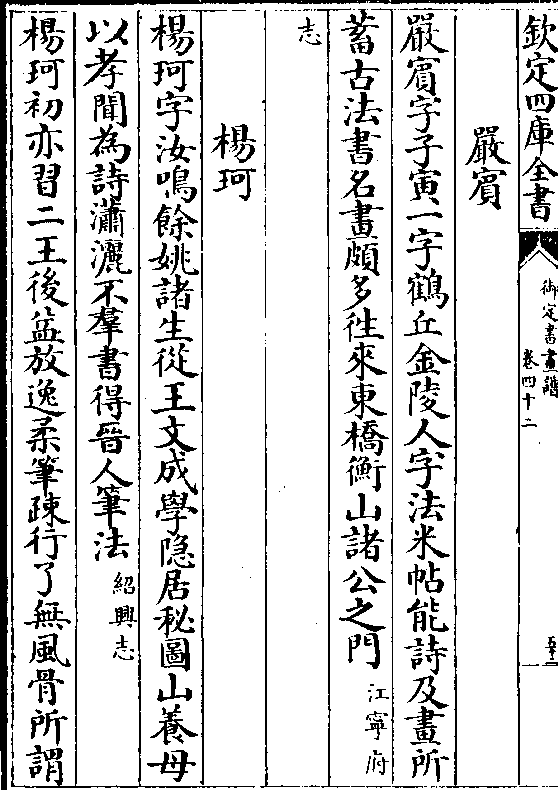 欽定四庫全書
御定書畫譜
卷四十二
嚴賓
嚴賓字子寅一字鶴丘金陵人字法米帖能詩及畫所
蓄古法書名畫頗多徃來東橋衡山諸公之門江寧府
志
楊珂
楊珂字汝鳴餘姚諸生從王文成學隐居秘圖山養母
以孝聞為詩瀟灑不羣書得晉人筆法紹興志
楊珂初亦習二王後益放逸柔筆疎行了無風骨所謂